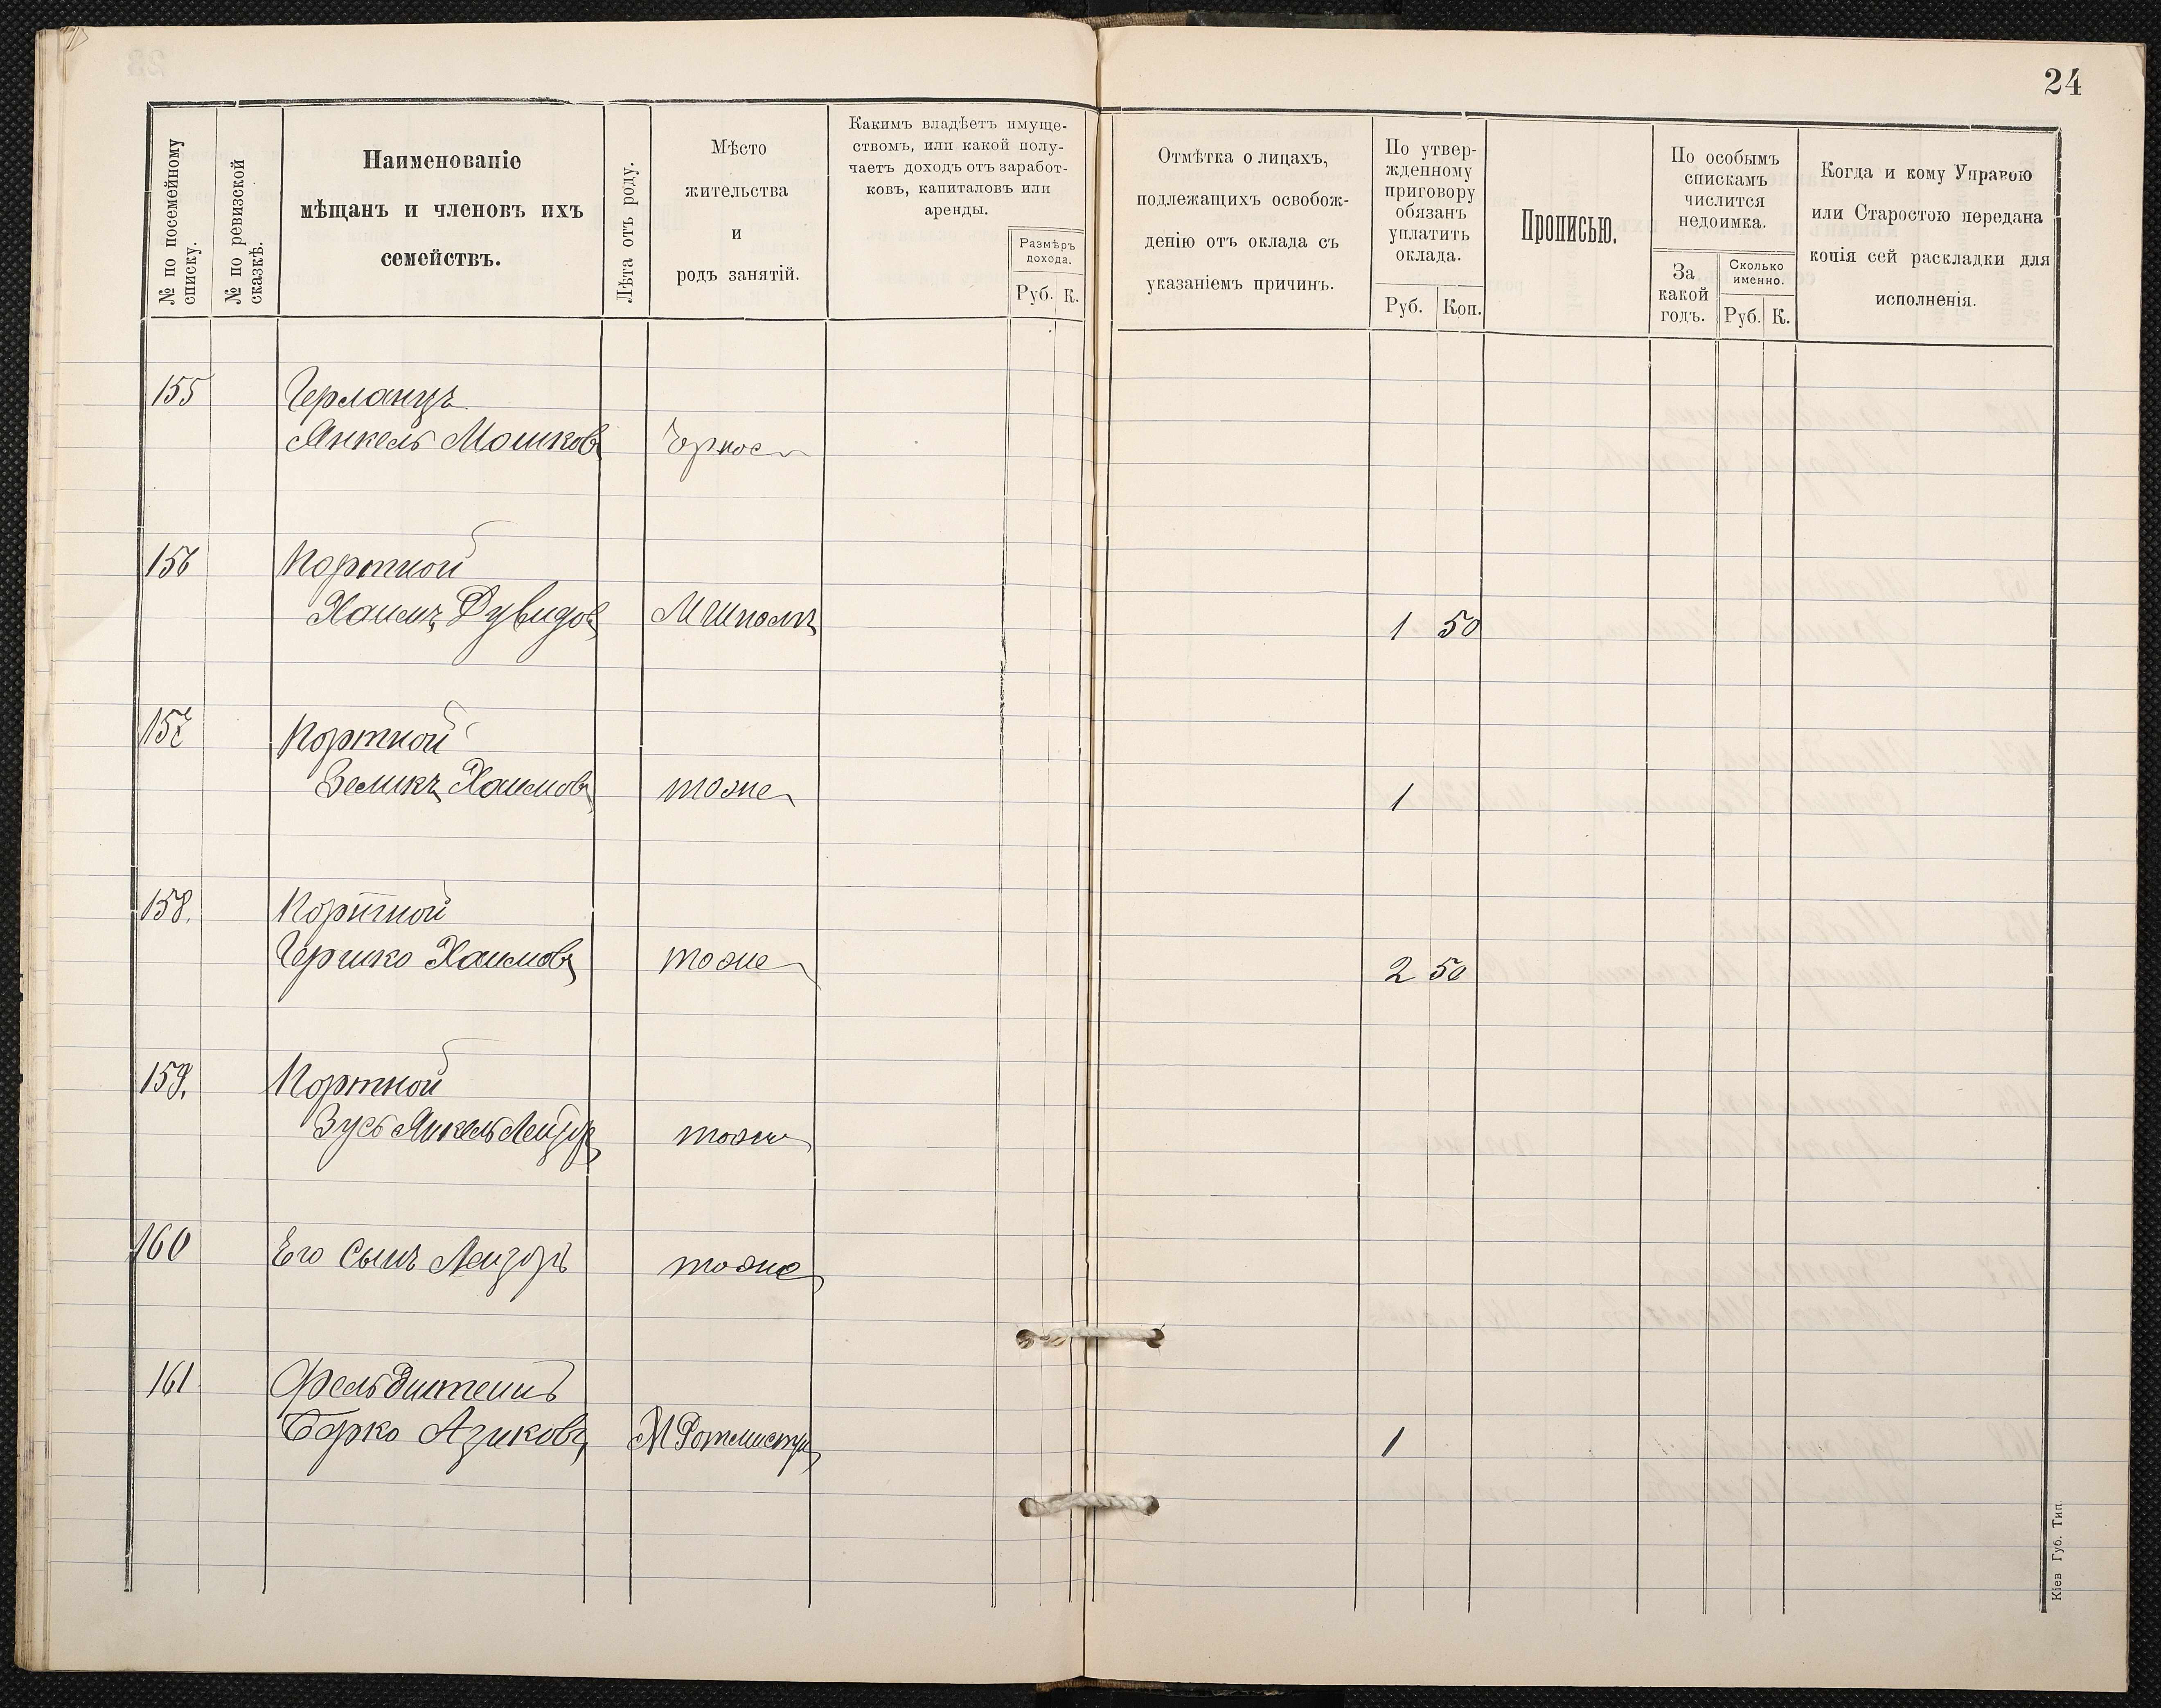 24
№ по посемейному
списку.
№ по ревизской
сказкѣ.
Наименованіе
мѣщанъ и членовъ ихъ
семействъ.
Лѣта отъ роду.
Мѣсто
жительства
и
родъ занятій.
Какимъ владѣетъ имуще-
ствомъ, или какой полу-
чаетъ доходъ отъ заработ-
ковъ, капиталовъ или
аренды.
Размѣръ
дохода.
Руб. К.
Отмѣтка о лицахъ,
подлежащихъ освобож-
денію отъ оклада съ
указаніемъ причинъ.
По утвер-
жденному
приговору
обязанъ
уплатить
оклада.
Руб. Коп.
Прописью.
По особымъ
спискамъ
числится
недоимка.
За
какой
годъ.
Сколько
именно.
Руб. К.
Когда и кому Управою
или Старостою передана
копія сей раскладки для
исполненія.
155 Герланцъ
Янкель Мошковъ
156 Портной
Хаимъ Дувидовъ М Шпола 1 50
157 Портной
Зеликъ Хаимовъ тоже 1
158. Портной
Гершко Хаимовъ тоже 2 50
159. Портной
Зусь Янкель Лейзор тоже
160 Его сынъ Лейзоръ тоже
161 Фельдштейнъ
Борко Азиковъ М Ротмистр 1
Кіев Губ. Тип.